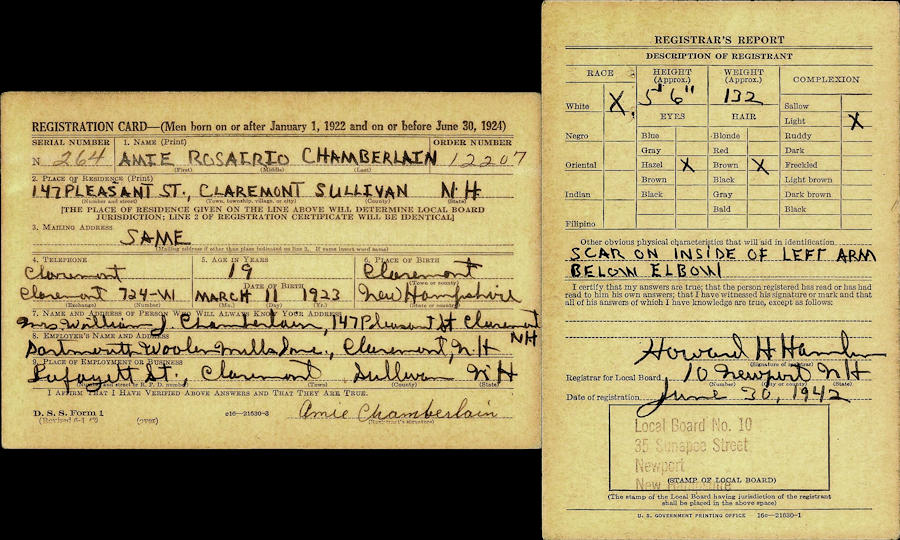 REGISTRATION CARD—(Men born on or after January 1, 1922 and on or before June 30, 1924)
SERIAL NUMBER 1. NAME (Print) ORDER NUMBER
N 264 AMIE ROSAIRIO CHAMBERLAIN 12207
(First) (Middle) (Last)
2. PLACE OF RESIDENCE (Print)
147 PLEASANT ST., CLAREMONT SULLIVAN N H
(Number and street) (Town, township, village, or city) (County) (State)
[THE PLACE OF RESIDENCE GIVEN ON THE LINE ABOVE WILL DETERMINE LOCAL BOARD
JURISDICTION; LINE 2 OF REGISTRATION CERTIFICATE WILL BE IDENTICAL]
3. MAILING ADDRESS
SAME
[Mailing address if other than place indicated on line 2. If same insert word same]
4. TELEPHONE 5. AGE IN YEARS 6. PLACE OF BIRTH
Claremont 19 Claremont
DATE OF BIRTH (Town or county)
Claremont 724-W MARCH 11 1923 New Hampshire
(Exchange) (Number) (Mo.) (Day) (Yr.) (State or country)
7. NAME AND ADDRESS OF PERSON WHO WILL ALWAYS KNOW YOUR ADDRESS
Mrs William J. Chamberlain, 147 Pleasant St Claremont NH
8. EMPLOYER'S NAME AND ADDRESS
Dartmouth Woolen Mills Inc., Claremont, N H
9. PLACE OF EMPLOYMENT OR BUSINESS
Lafayett St., Claremont Sullivan N H
(Number and street or R. F. D. number) (Town) (County) (State)
I AFFIRM THAT I HAVE VERIFIED ABOVE ANSWERS AND THAT THEY ARE TRUE.
D. S. S. Form 1
(over) c16—21630-3 Amie Chamberlain
(Registrant's signature)
REGISTRAR'S REPORT
DESCRIPTION OF REGISTRANT
RACE HEIGHT (Approx.) WEIGHT (Approx.) COMPLEXION
White X 5' 6" 132 Sallow
EYES HAIR Light X
Negro Blue Blonde Ruddy
Gray Red Dark
Oriental Hazel X Brown X Freckled
Brown Black Light brown
Indian Black Gray Dark brown
Bald Black
Filipino
Other obvious physical characteristics that will aid in identification
SCAR ON INSIDE OF LEFT ARM
BELOW ELBOW
I certify that my answers are true; that the person registered has read or has had
read to him his own answers; that I have witnessed his signature or mark and that
all of his answers of which I have knowledge are true, except as follows:
Howard H Hamlin
(Signature of registrar)
Registrar for Local Board 10 Newport N H
(Number) (City or county) (State)
Date of registration June 30, 1942
Local Board No. 10
35 Sunapee Street
Newport
New Hampshire
(STAMP OF LOCAL BOARD)
(The stamp of the Local Board having jurisdiction of the registrant
shall be placed in the above space)
U. S. GOVERNMENT PRINTING OFFICE 16c—21630-1